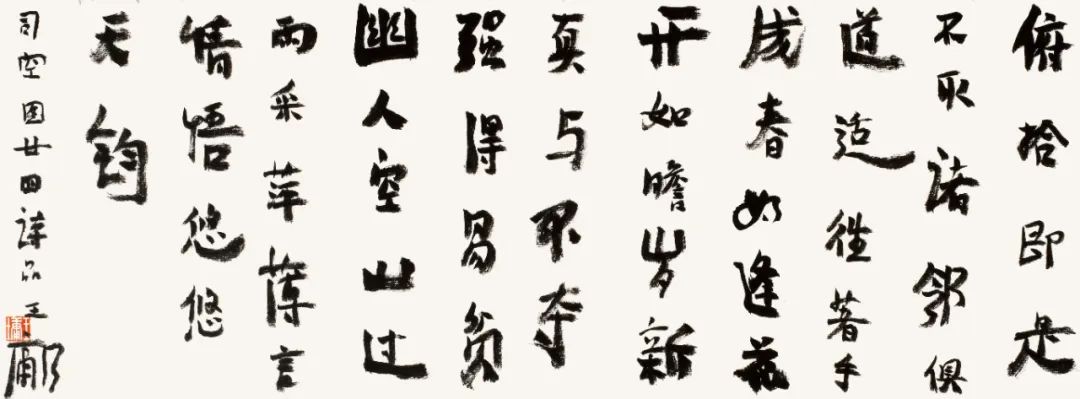 俯拾即是
不取诸邻俱
道适往著手
成春如逢花
开如瞻岁新
真与不夺
强得易贫
幽人空山过
雨采苹薄言
情悟悠悠
天钧
司空图廿四诗品王